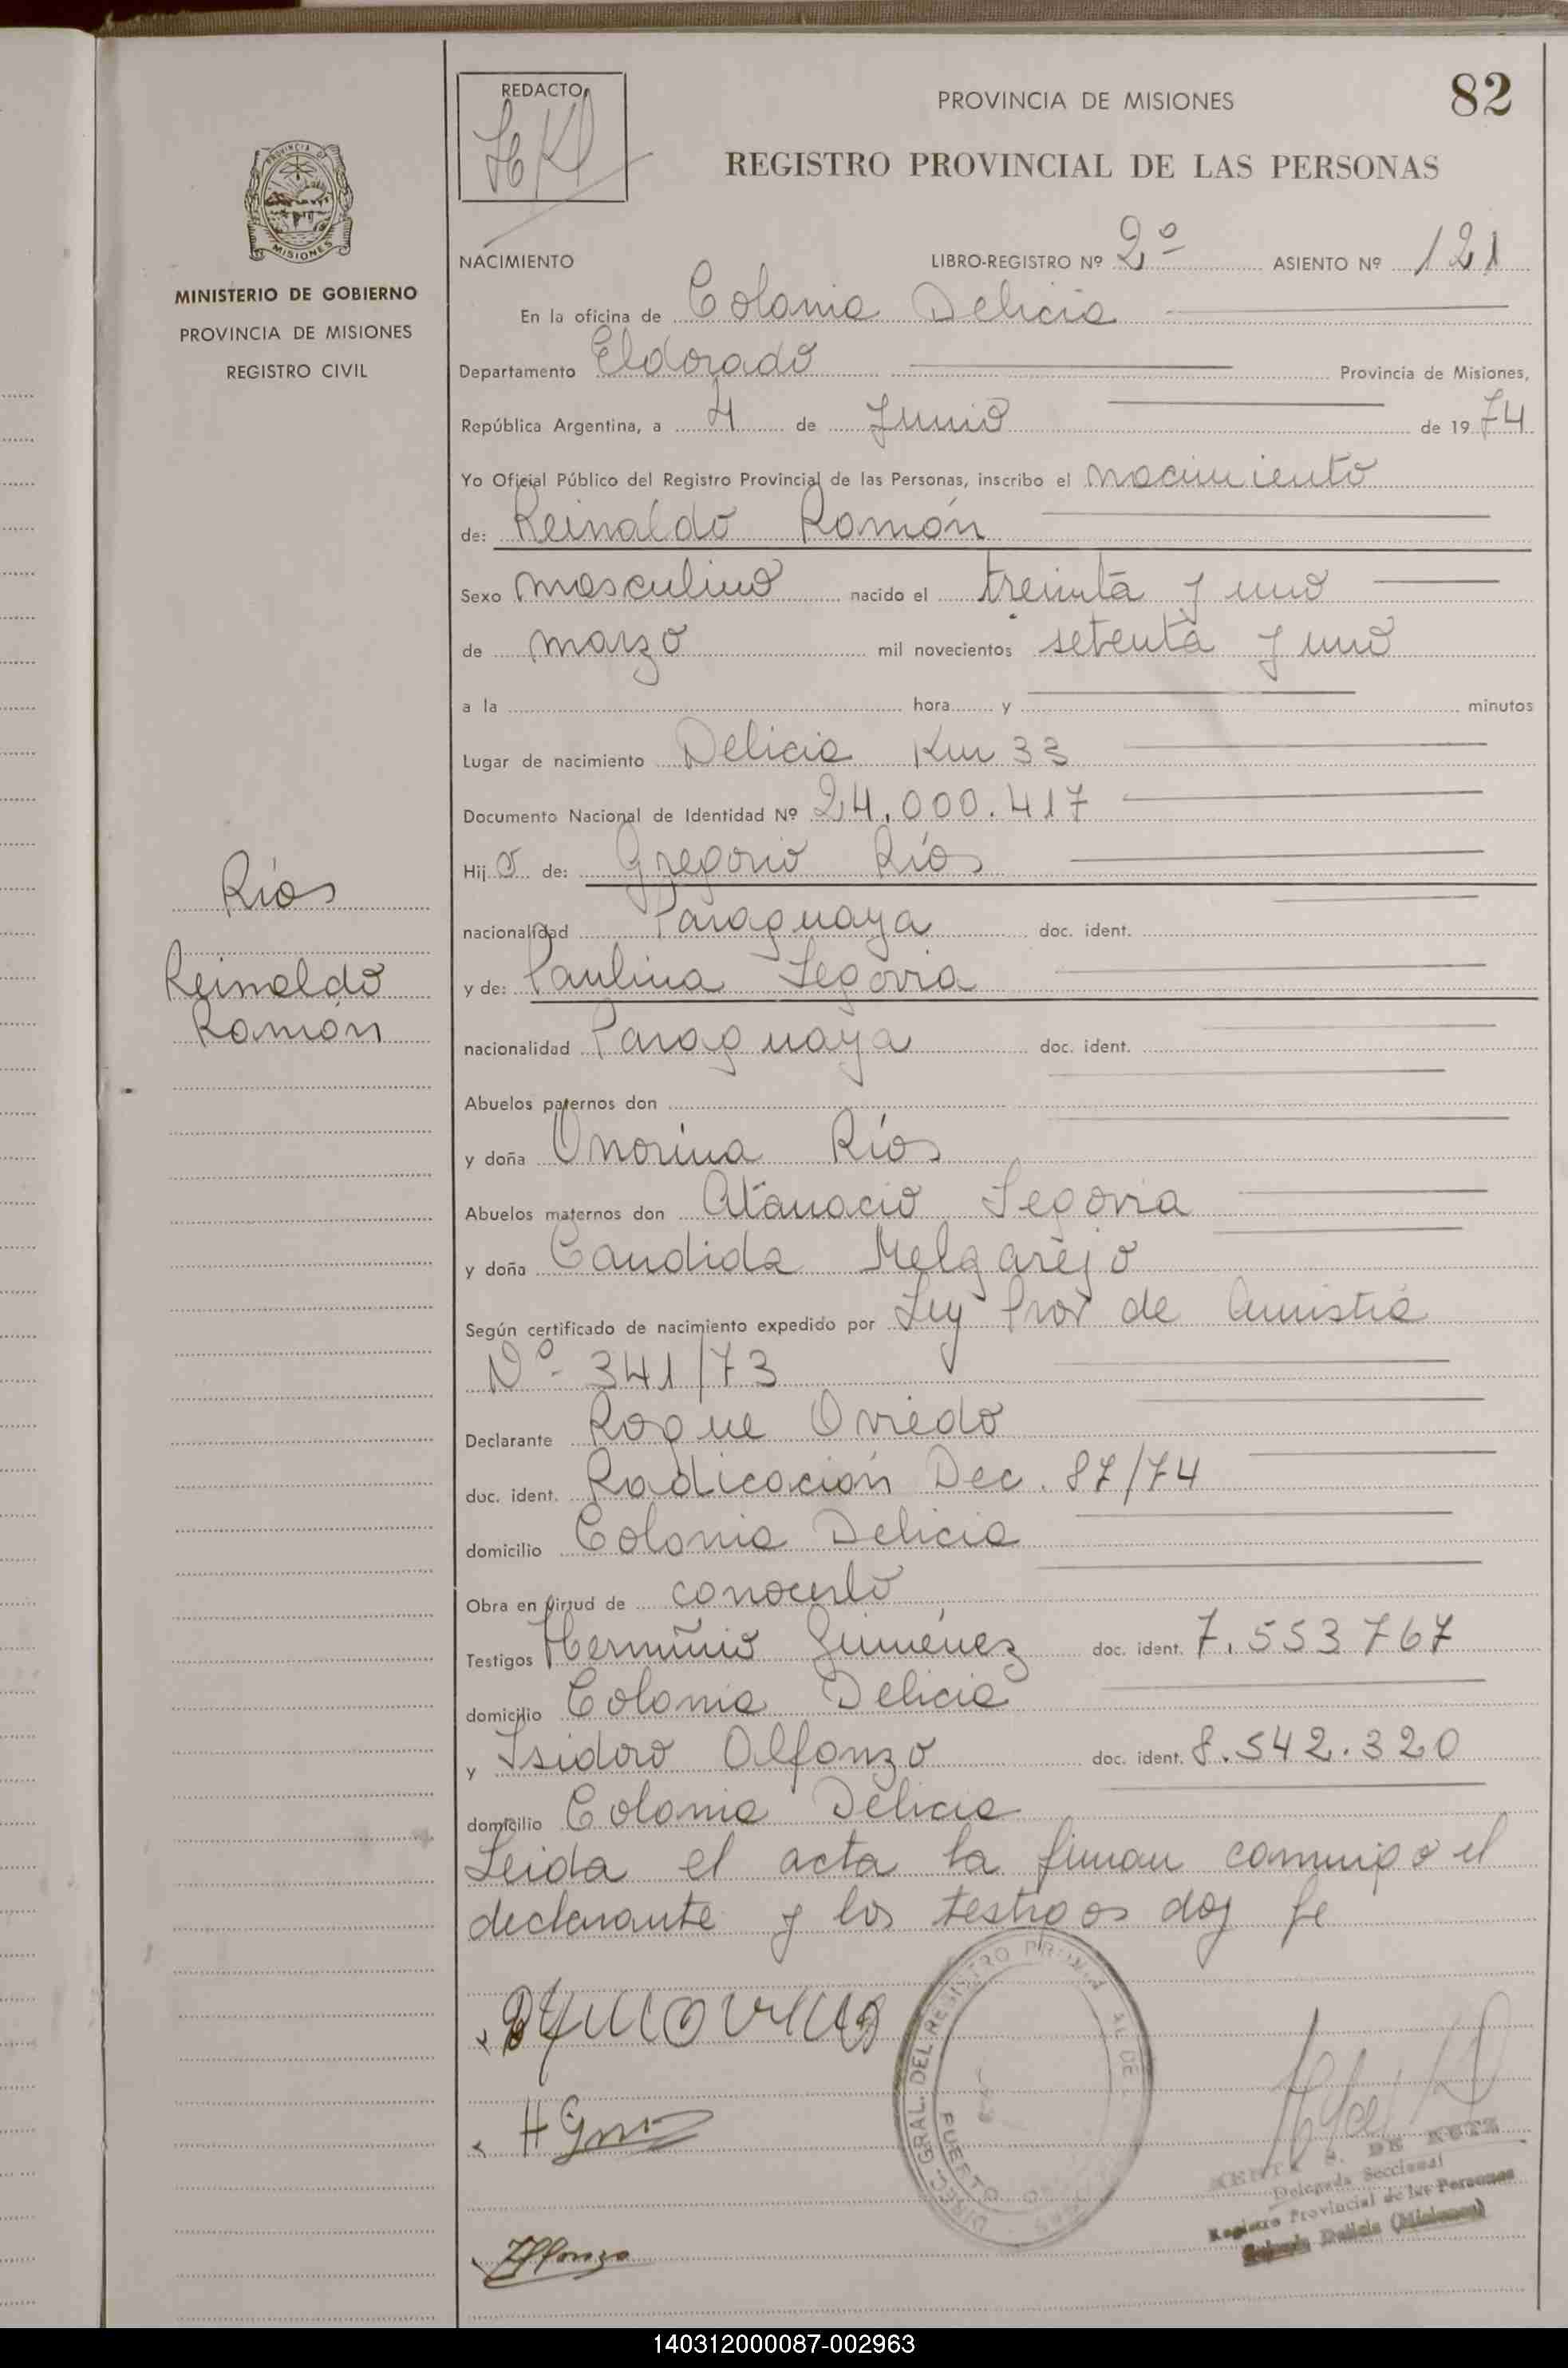 82
PROVINCIA DE MISIONES
REDACTO
REGISTRO PROVINCIAL DE LAS PERSONAS
PROVINCIA DE
MISIONES
MINISTERIO DE GOBIERNO
PROVINCIA DE MISIONES
REGISTRO CIVIL
NACIMIENTO LIBRO-REGISTRO Nº 2º ASIENTO Nº 121
En la oficina de Colonia Delicia
Departamento Eldorado Provincia de Misiones,
República Argentina, a 4 de Junio de 1974
Yo Oficial Público del Registro Provincial de las Personas, inscribo el nacimiento
de: Reinaldo Ramón
Sexo masculino nacido el treinta y uno
de marzo mil novecientos setenta y uno
a la hora y minutos
Lugar de nacimiento Delicia Km 33
Documento Nacional de Identidad Nº 24.000.417
Hijo de: Gregorio Ríos
nacionalidad Paraguaya doc. ident.
y de: Paulina Segovia
nacionalidad Paraguaya doc. ident.
Abuelos paternos don
y doña Onorina Ríos
Abuelos maternos don Atanacio Segovia
y doña Candida Melgarejo
Según certificado de nacimiento expedido por Ley Prov de Amistia
Nº 341/73
Declarante Roque Oviedo
doc. ident. Radicación Dec. 87/74
domicilio Colonia Delicia
Obra en virtud de conocerlo
Testigos Herminio Giménez doc. ident. 7.553767
domicilio Colonia Delicia
y Isidoro Alfonzo doc. ident. 8.542.320
domicilio Colonia Delicia
Leida el acta la firman conmigo el
declarante y los testigos doy fe
Ríos
Reinaldo
Ramón
DIREC. GRAL. DEL REGISTRO PROVINCIAL DE
PUERTO
Delegada Seccional
Registro Provincial de las Personas
Colonia Delicia (Misiones)
140312000087-002963